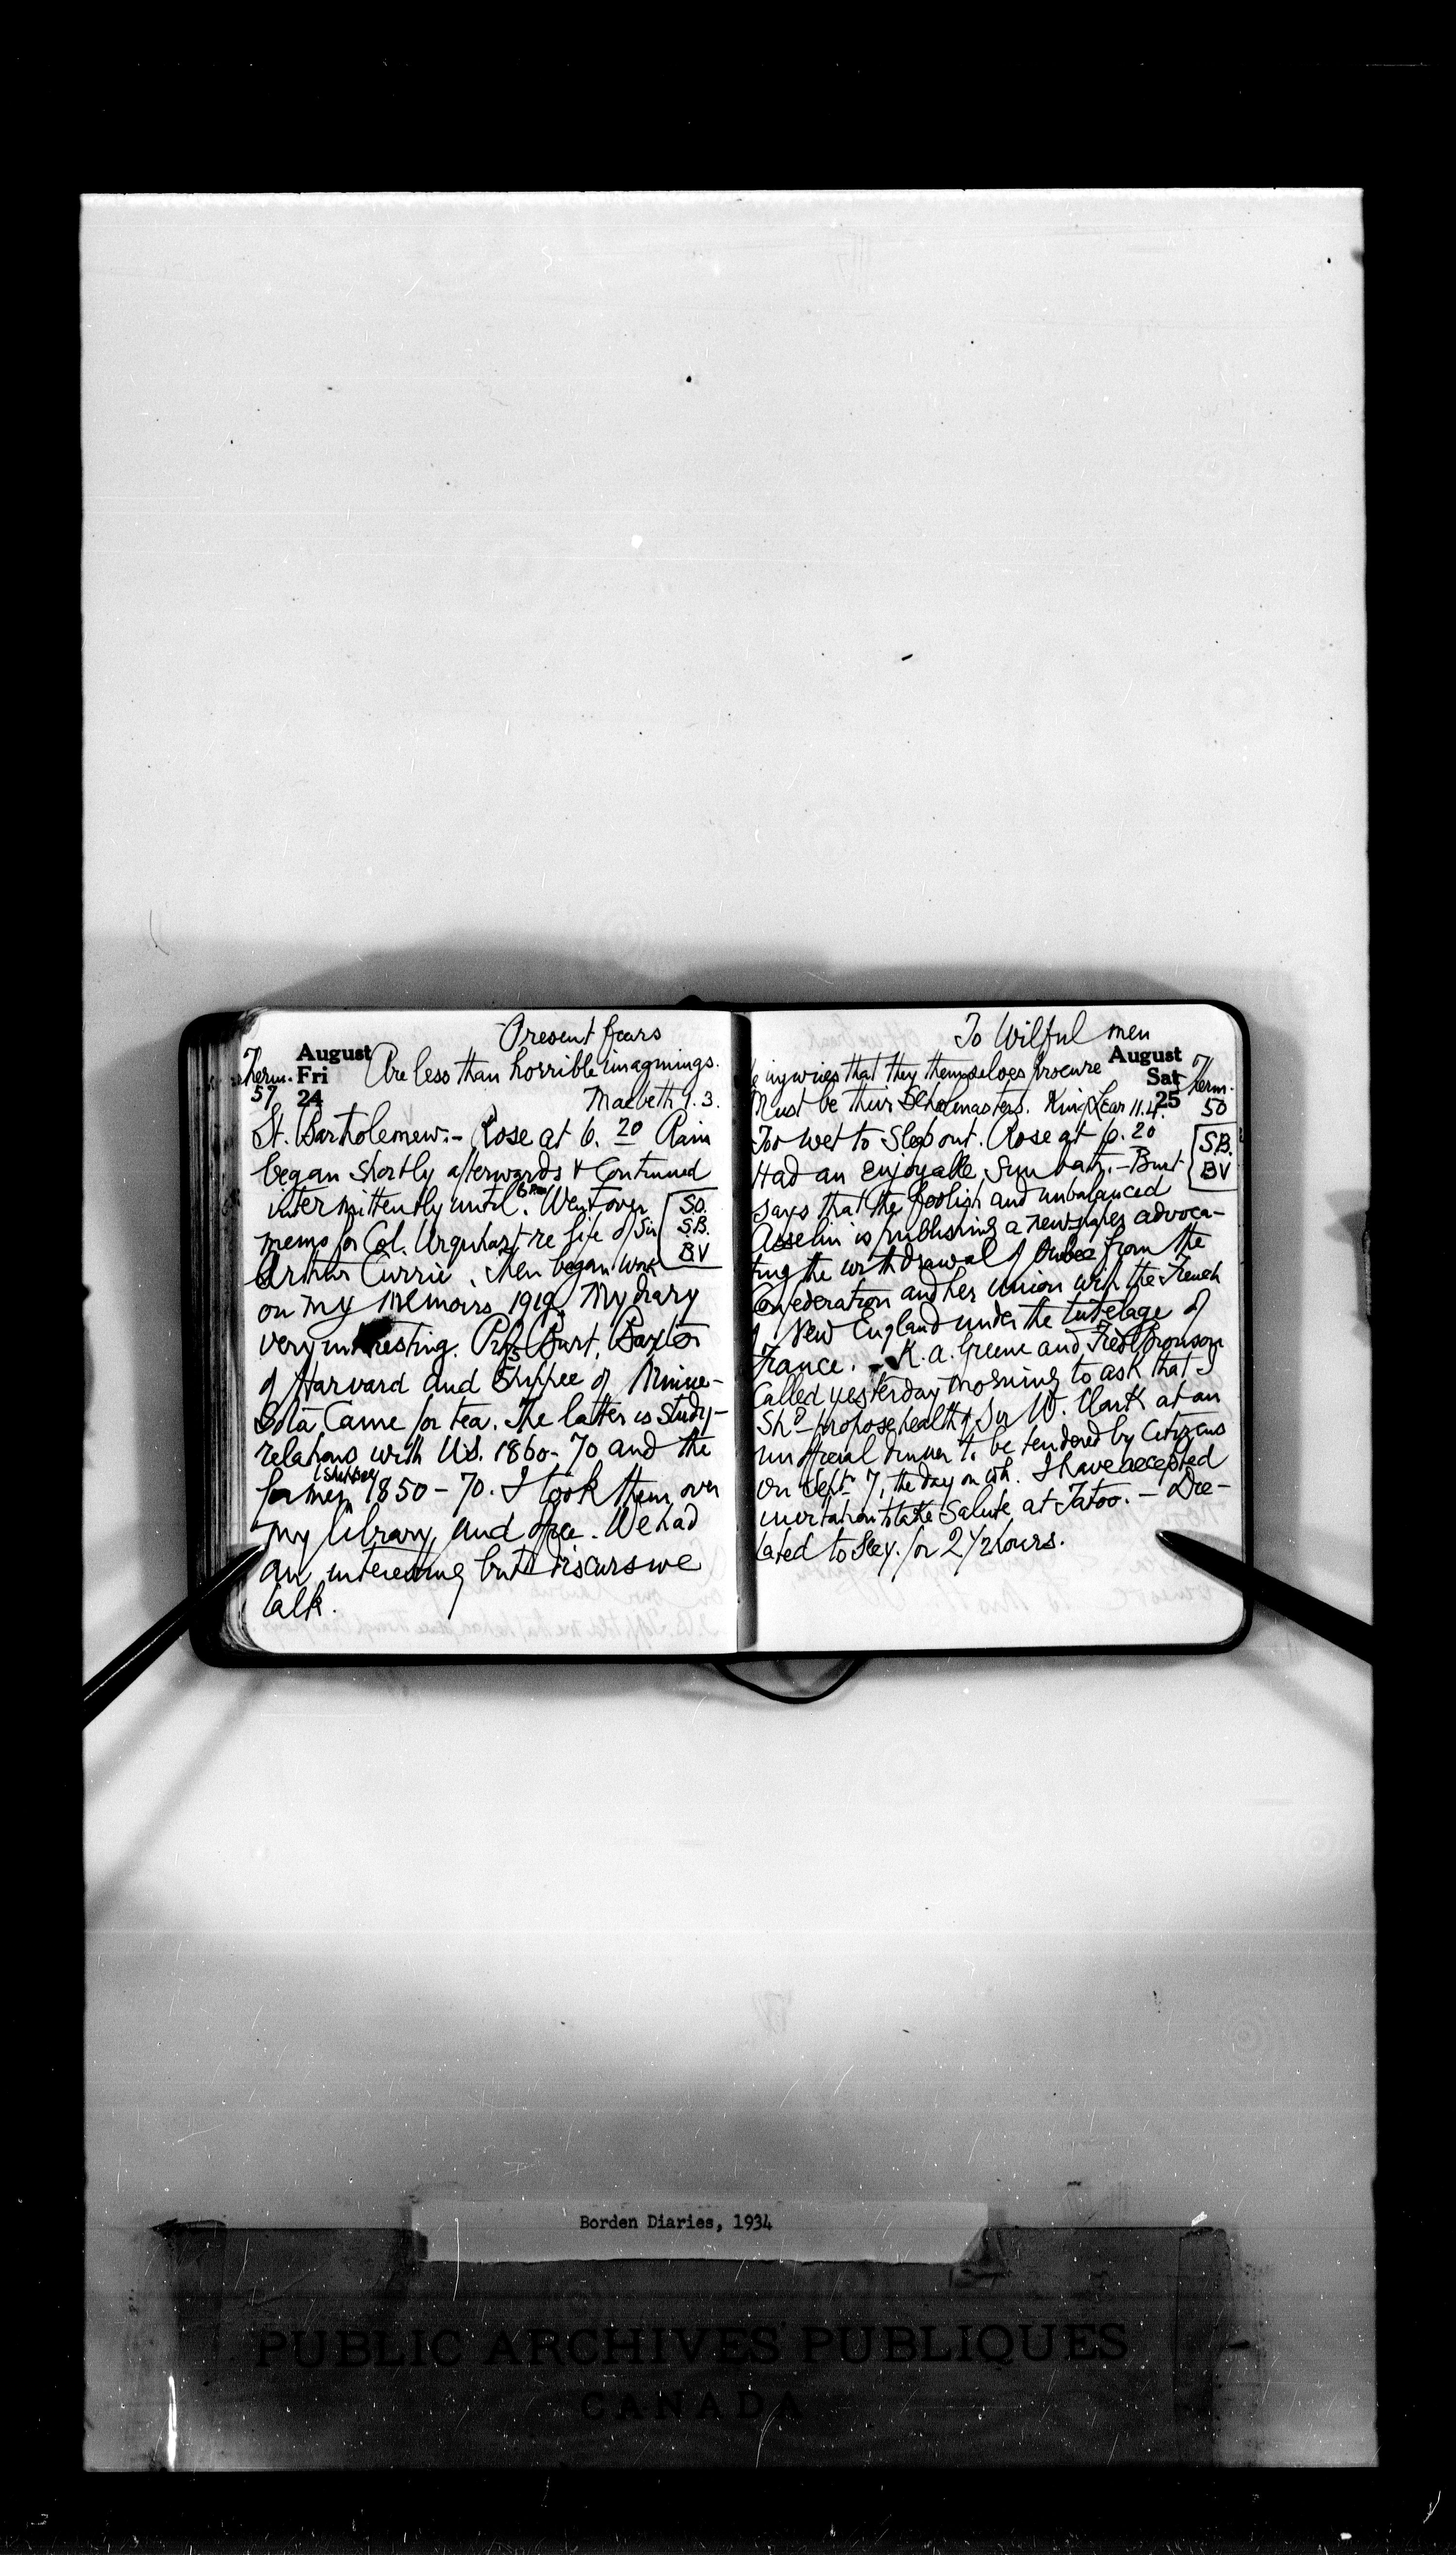 Present fears
August
Therm. Fri Are less than horrible imaginings.
57 24 Macbeth 1. 3.
St. Bartholemew:- Rose at 6. 20 Rain
began shortly afterwards & Continued
intermittently until 6 P.M. Went over
memo for Col. Urquhart re life of Sir
Arthur Currie. Then began work
SO.
S.B.
BV
on my memoirs 1919. My diary
very interesting. Profs Burt, Baxter
of Harvard and Shippee of Minne-
sota Came for tea. The latter is study-
relations with U.S. 1860-70 and the
former (Shippee) 1850-70. I took them over
my library and office. We had
an interesting but discursive
talk.
To Wilful men
August
injuries that they themselves procure Sat Therm.
Must be their Schoolmasters. King Lear 11.4. 25 50
Too wet to Sleep out. Rose at 6. 20
Had an enjoyable Sun bath. - Burt
S.B.
BV
says that the foolish and unbalanced
Asselin is publishing a newspaper advoca-
ting the withdrawal of Quebec from the
Confederation and her union with the French
of New England under the tutelage of
France. - K. A. Greene and Fred Bronson
Called yesterday morning to ask that I
Shd propose health of Sir W. Clark at an
unofficial dinner to be tendered by Citizens
on Sept 7, the day on wh. I have accepted
invitation to take Salute at Tatoo. - Dic-
tated to Secy. for 2 1/2 hours.
Borden Diaries, 1934
PUBLIC ARCHIVES PUBLIQUES
CANADA